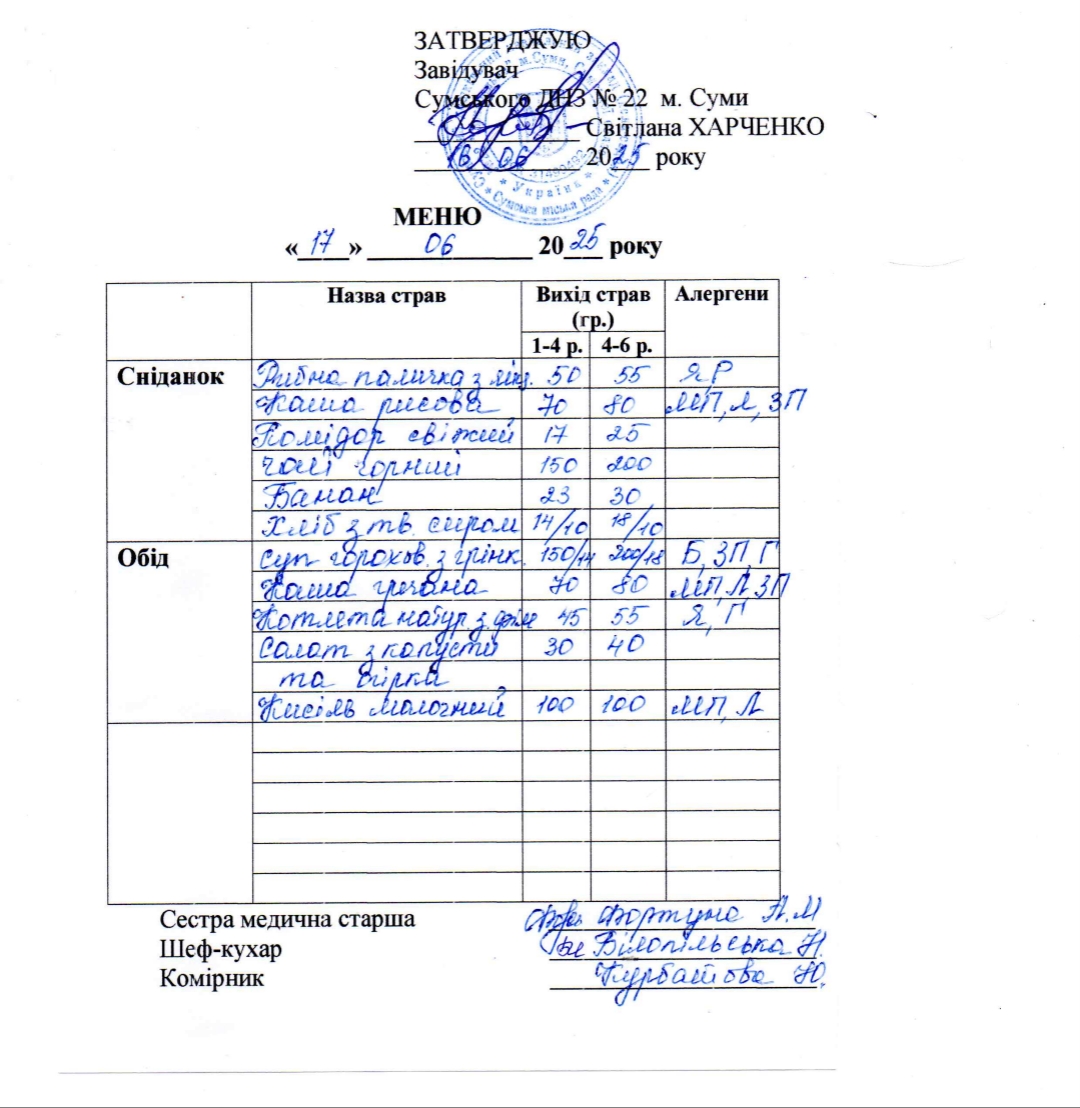 ЗАТВЕРДЖУЮ
Завідувач
Сумського ДНЗ № 22 м. Суми
Світлана ХАРЧЕНКО
06 2025 року
МЕНЮ
«17» 06 2025 року
Назва страв Вихід страв (гр.) Алергени
1-4 р. 4-6 р.
Сніданок Рибна паличка з 50 55 Я,Р
Каша рисова 70 80 МП, Л, ЗП
Помідор свіжий 17 25
Чай чорний 150 200
Банан 23 30
Хліб з тв. сиром 14/10 18/10
Обід Суп горохов. з грінк. 150/14 200/18 Б, ЗП, Г
Каша гречана 70 80 МП, Л, ЗП
Котлета натур. з 45 55 Я, Г
Салат з капусти 30 40
та огірка
Кисіль молочний 100 100 МП, Л
Сестра медична старша Фортуна А.М
Шеф-кухар Білопільська Н.
Комірник Курбатова Ю.
Україна
Сумська міська рада